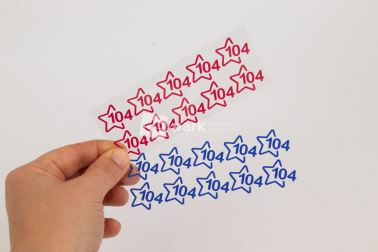 104 104 104 104 104
104 104 104 104 104
104 104 104 104 104
104 104 104 104 104